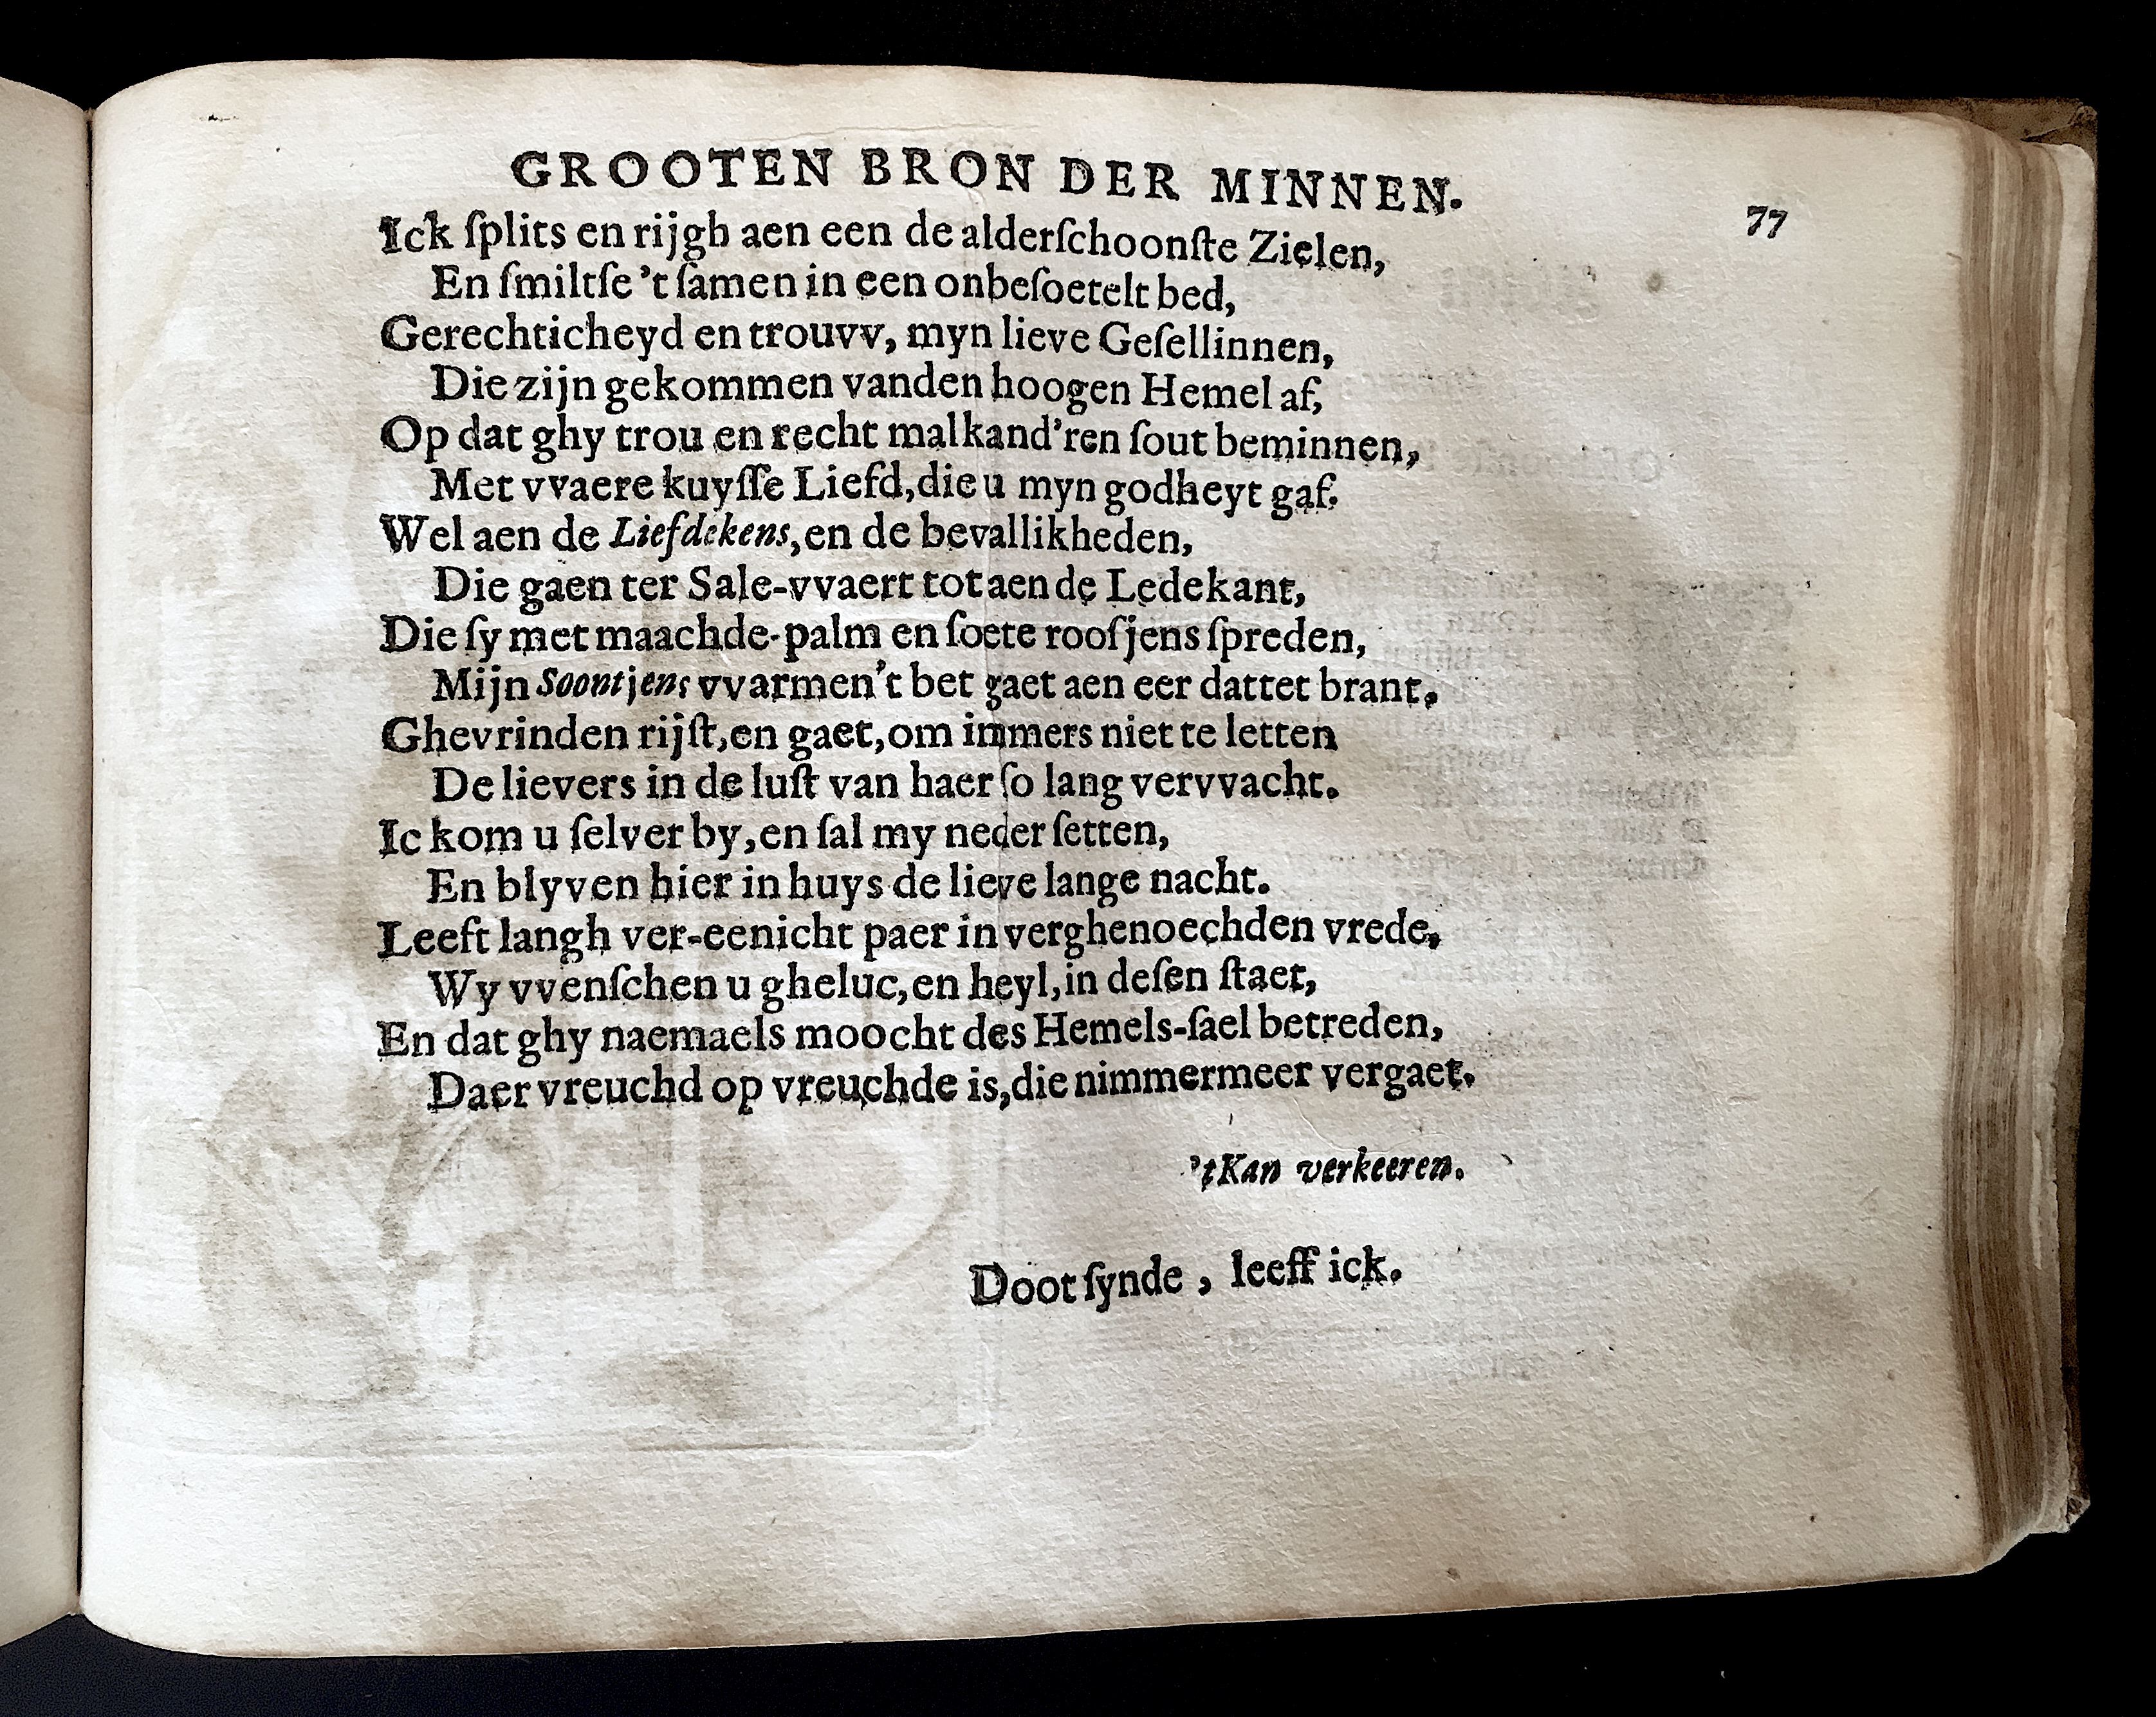 GROOTEN BRON DER MINNEN.
77
Ick ſplits en rijgh aen een de alderſchoonſte Zielen,
En ſmiltſe 't ſamen in een onbeſoetelt bed,
Gerechticheyd en trouvv, myn lieve Geſellinnen,
Die zijn gekommen vanden hoogen Hemel af,
Op dat ghy trou en recht malkand'ren ſout beminnen,
Met vvaere kuyſſe Liefd, die u myn godheyt gaf.
Wel aen de Liefdekens, en de bevallikheden,
Die gaen ter Sale-vvaert tot aen de Ledekant,
Die ſy met maachde-palm en ſoete rooſjens ſpreden,
Mijn Soontjens vvarmen't bet gaet aen eer dattet brant.
Ghevrinden rijſt, en gaet, om immers niet te letten
De lievers in de luſt van haer ſo lang vervvacht.
Ic kom u ſelver by, en ſal my neder ſetten,
En blyven hier in huys de lieve lange nacht.
Leeft langh ver-eenicht paer in verghenoechden vrede,
Wy vvenſchen u gheluc, en heyl, in deſen ſtaet,
En dat ghy naemaels moocht des Hemels-ſael betreden,
Daer vreuchd op vreuchde is, die nimmermeer vergaet.
't Kan verkeeren.
Doot ſynde, leeff ick.